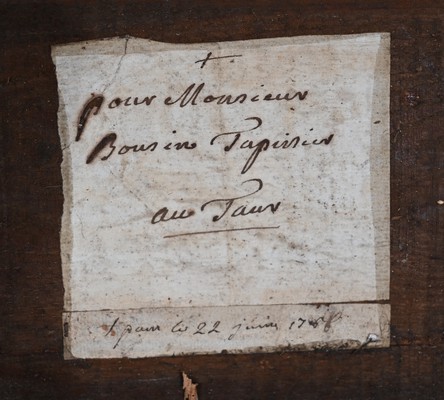 +
pour Monsieur
Bousin Tapissier
au Taur
le 22 juin